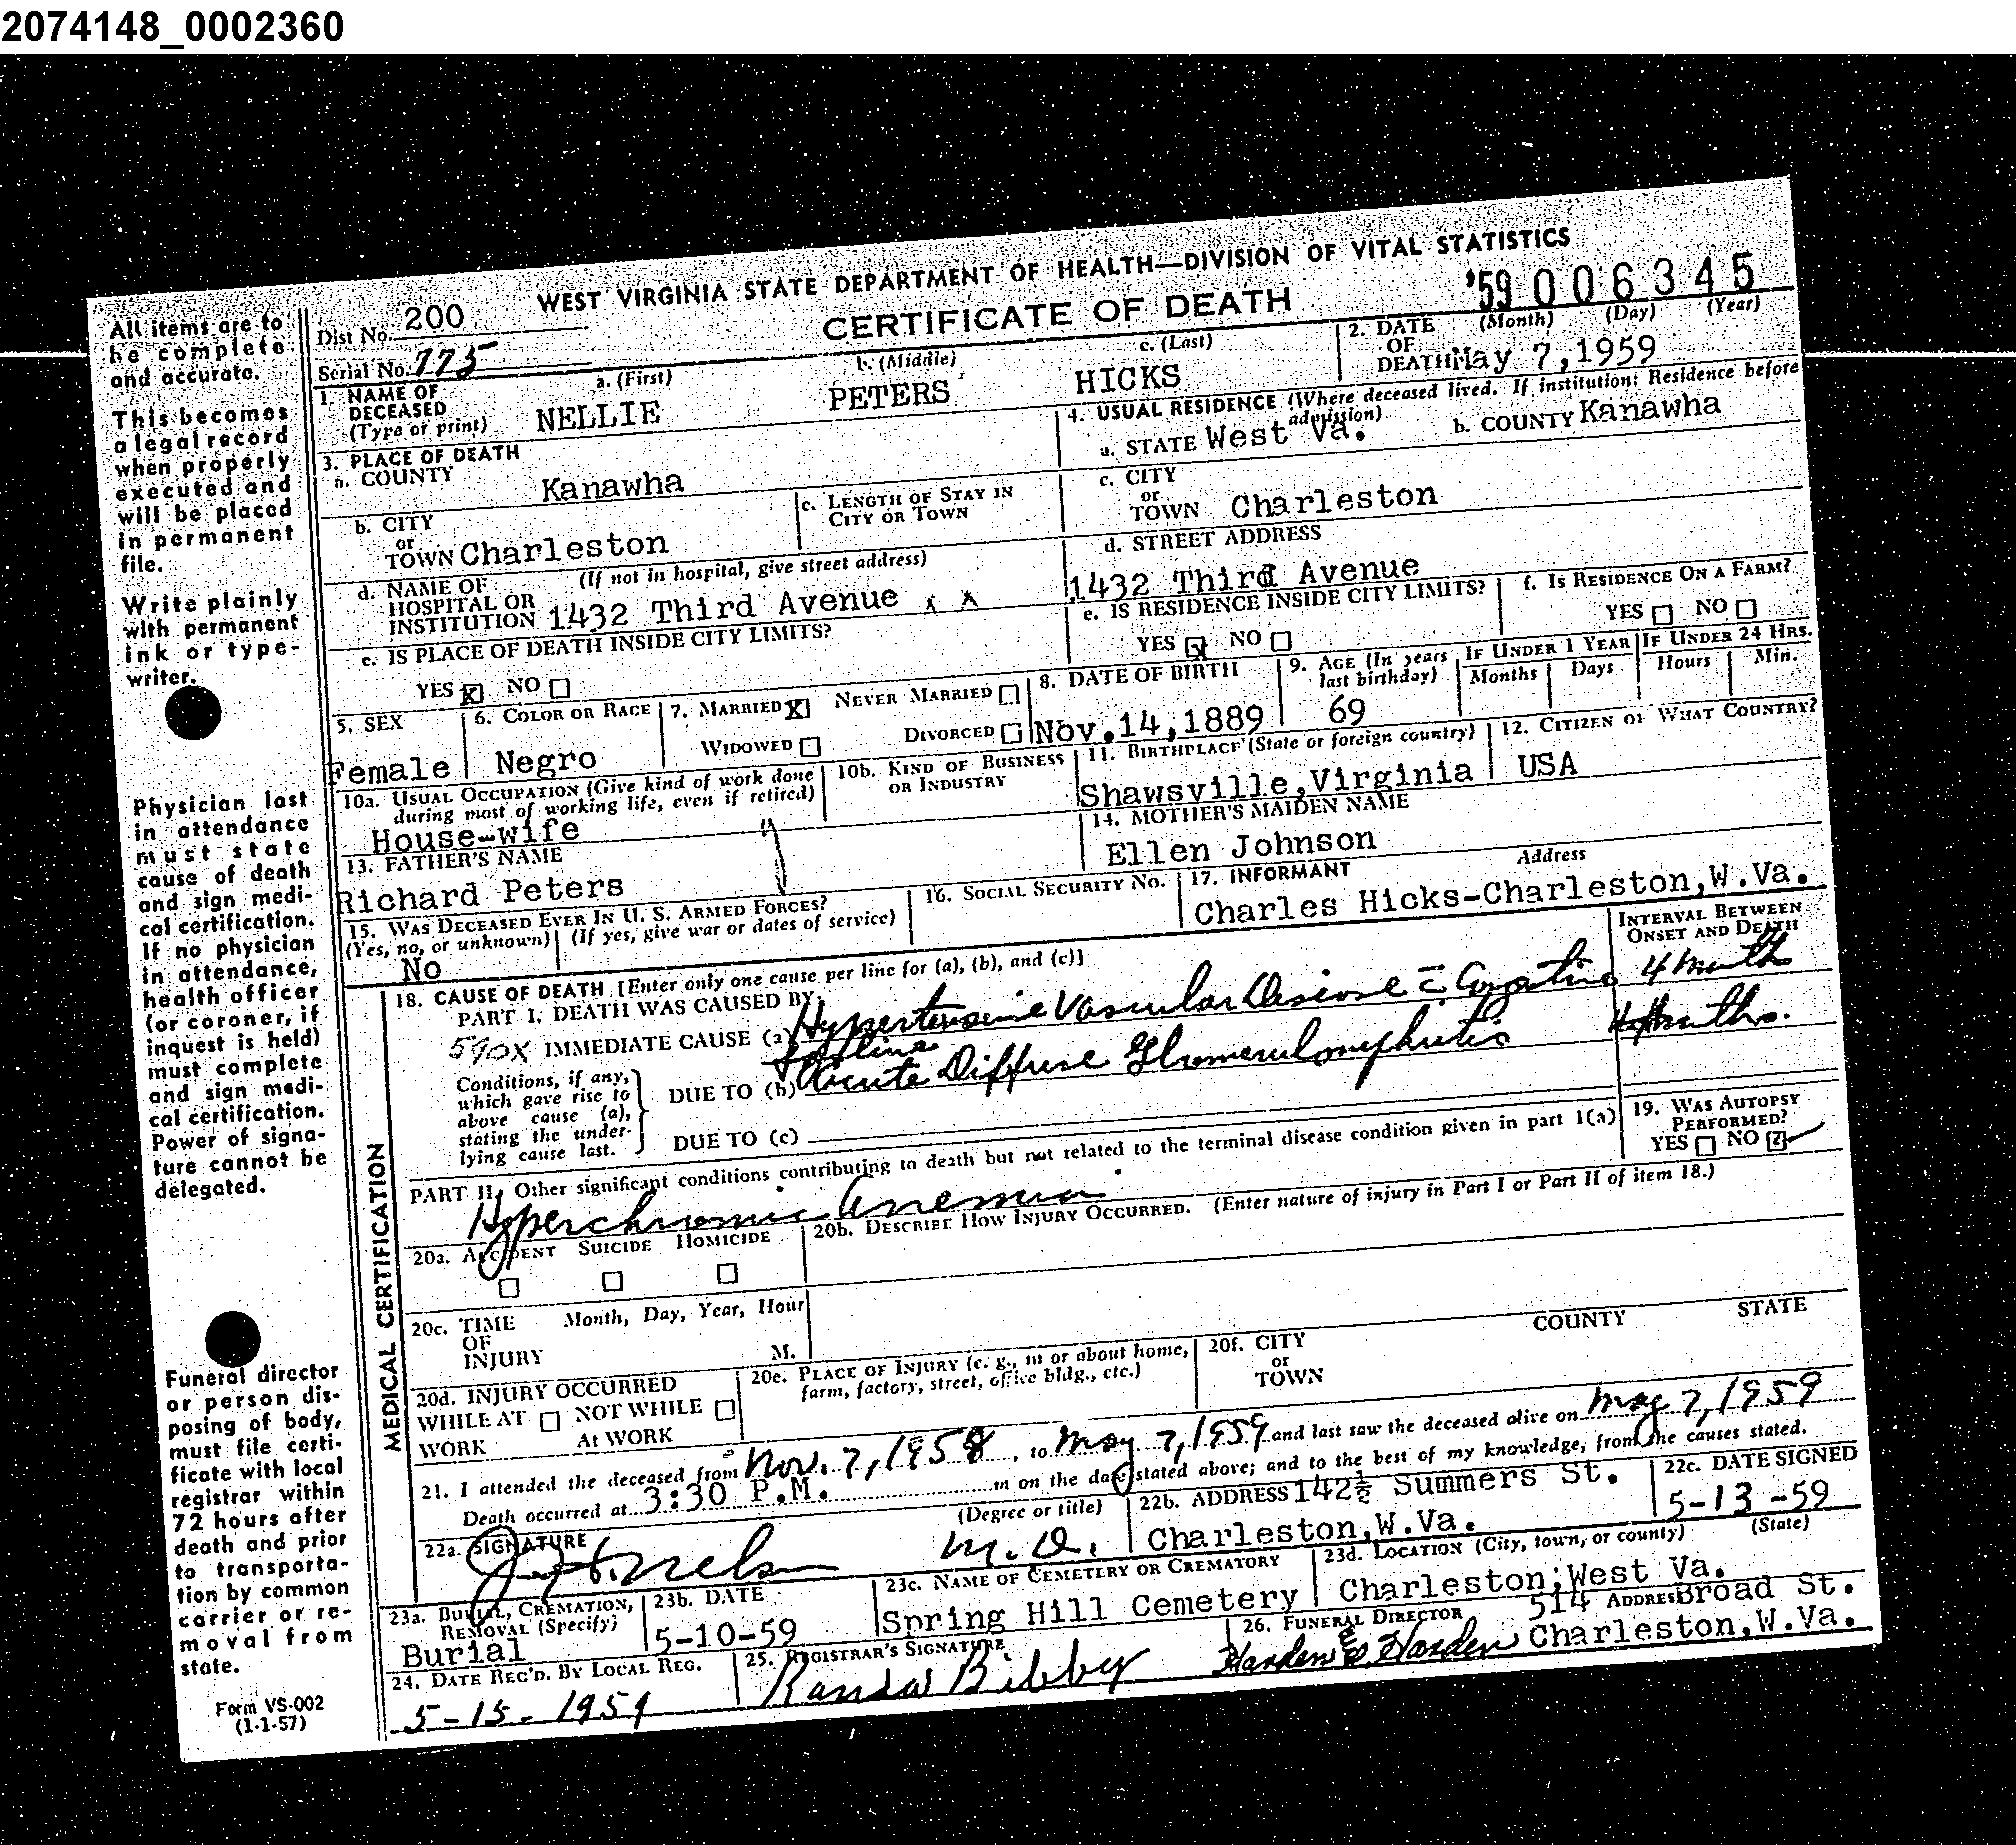 2074148_0002360
WEST VIRGINIA STATE DEPARTMENT OF HEALTH—DIVISION OF VITAL STATISTICS
CERTIFICATE OF DEATH
'59 006345
All items are to
be complete
and accurate.
This becomes
a legal record
when properly
executed and
will be placed
in permanent
file.
Write plainly
with permanent
ink or type-
writer.
Physician last
in attendance
must state
cause of death
and sign medi-
cal certification.
If no physician
in attendance,
health officer
(or coroner, if
inquest is held)
must complete
and sign medi-
cal certification.
Power of signa-
ture cannot be
delegated.
Funeral director
or person dis-
posing of body,
must file certi-
ficate with local
registrar within
72 hours after
death and prior
to transporta-
tion by common
carrier or re-
moval from
state.
Form VS-002
(1-1-57)
Dist No. 200
Serial No. 775
1. NAME OF DECEASED (Type or print) a. (First) NELLIE b. (Middle) PETERS c. (Last) HICKS
2. DATE OF DEATH (Month) (Day) (Year) May 7,1959
3. PLACE OF DEATH
a. COUNTY Kanawha
b. CITY or TOWN Charleston
c. LENGTH OF STAY IN CITY OR TOWN
d. NAME OF HOSPITAL OR INSTITUTION (If not in hospital, give street address) 1432 Third Avenue
e. IS PLACE OF DEATH INSIDE CITY LIMITS?
YES X NO
4. USUAL RESIDENCE (Where deceased lived. If institution: Residence before admission)
a. STATE West Va. b. COUNTY Kanawha
c. CITY or TOWN Charleston
d. STREET ADDRESS
1432 Third Avenue
e. IS RESIDENCE INSIDE CITY LIMITS?
YES X NO
f. IS RESIDENCE ON A FARM?
YES NO
5. SEX Female
6. COLOR OR RACE Negro
7. MARRIED X NEVER MARRIED
WIDOWED DIVORCED
8. DATE OF BIRTH Nov.14,1889
9. AGE (In years last birthday) 69
IF UNDER 1 YEAR Months Days
IF UNDER 24 HRS. Hours Min.
10a. USUAL OCCUPATION (Give kind of work done during most of working life, even if retired)
House-wife
10b. KIND OF BUSINESS OR INDUSTRY
11. BIRTHPLACE (State or foreign country)
Shawsville,Virginia
12. CITIZEN OF WHAT COUNTRY?
USA
13. FATHER'S NAME
Richard Peters
14. MOTHER'S MAIDEN NAME
Ellen Johnson
15. WAS DECEASED EVER IN U. S. ARMED FORCES?
(Yes, no, or unknown) (If yes, give war or dates of service)
No
16. SOCIAL SECURITY No.
17. INFORMANT Address
Charles Hicks-Charleston,W.Va.
MEDICAL CERTIFICATION
18. CAUSE OF DEATH [Enter only one cause per line for (a), (b), and (c)]
INTERVAL BETWEEN ONSET AND DEATH
PART I. DEATH WAS CAUSED BY:
590X IMMEDIATE CAUSE (a) Hypertensive Vascular Disease 4 month
Conditions, if any, which gave rise to above cause (a), stating the underlying cause last.
DUE TO (b) Acute Diffuse Glomerulonephritis 4 months.
DUE TO (c)
PART II. Other significant conditions contributing to death but not related to the terminal disease condition given in part I(a)
Hyperchromic Anemia
19. WAS AUTOPSY PERFORMED?
YES NO
20a. ACCIDENT SUICIDE HOMICIDE
20b. DESCRIBE HOW INJURY OCCURRED. (Enter nature of injury in Part I or Part II of item 18.)
20c. TIME OF INJURY Month, Day, Year, Hour M.
20d. INJURY OCCURRED
WHILE AT WORK NOT WHILE AT WORK
20e. PLACE OF INJURY (e. g., in or about home, farm, factory, street, office bldg., etc.)
20f. CITY or TOWN COUNTY STATE
21. I attended the deceased from Nov. 7, 1958, to May 7, 1959 and last saw the deceased alive on May 7, 1959
Death occurred at 3:30 P.M. m on the date stated above; and to the best of my knowledge, from the causes stated.
22a. SIGNATURE (Degree or title) M.D.
22b. ADDRESS 142½ Summers St.
Charleston,W.Va.
22c. DATE SIGNED
5-13-59
23a. BURIAL, CREMATION, REMOVAL (Specify)
Burial
23b. DATE
5-10-59
23c. NAME OF CEMETERY OR CREMATORY
Spring Hill Cemetery
23d. LOCATION (City, town, or county) (State)
Charleston;West Va.
24. DATE REC'D. BY LOCAL REG.
5-15-1959
25. REGISTRAR'S SIGNATURE
Bibby
26. FUNERAL DIRECTOR ADDRESS
Harden & Harden 514 Broad St.
Charleston,W.Va.